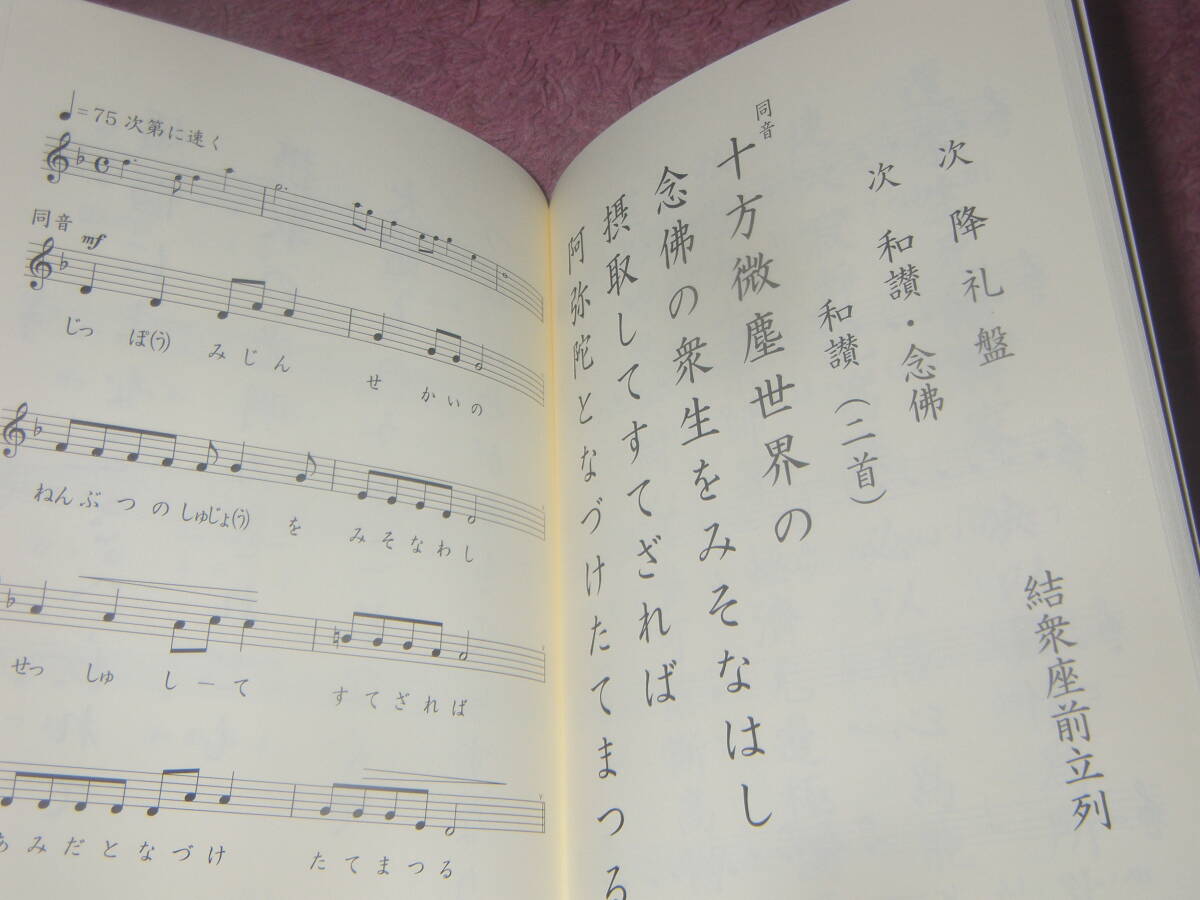 次 降礼盤
結衆座前立列
次 和讃・念佛
和讃（二首）
同音
十方微塵世界の
念佛の衆生をみそなはし
摂取してすてざれば
阿弥陀となづけたてまつる
♩=75 次第に速く
同音
mf
じっ ぽ(う) みじん せ かいの
ねんぶつのしゅじょ(う) を みそなわし
せっ しゅ しーて すてざれば
あみだとなづけ たてまつる